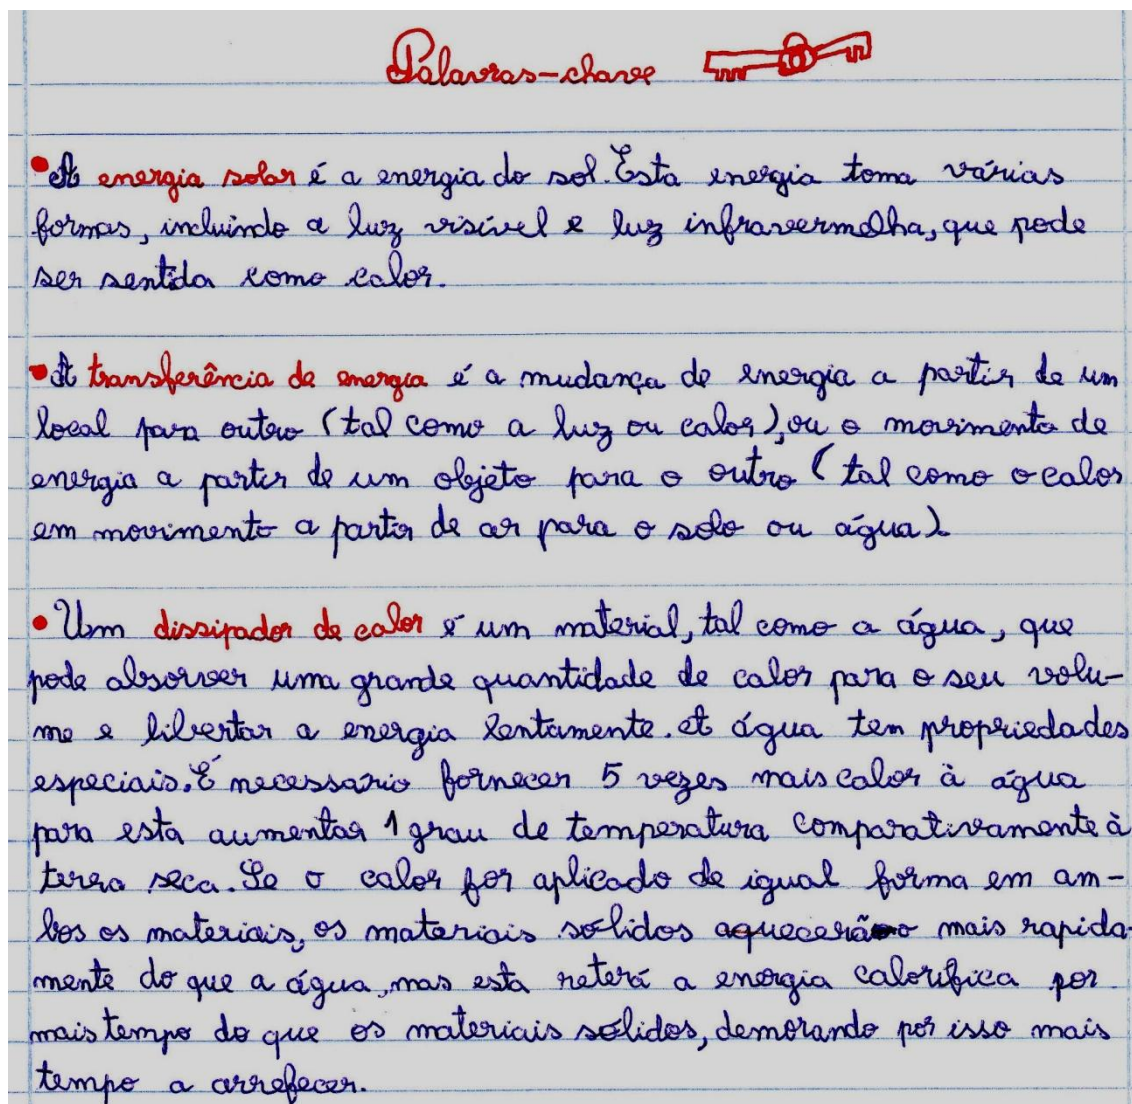 Palavras-chave
• A energia solar é a energia do sol. Esta energia toma várias
formas, incluindo a luz visível e luz infravermelha, que pode
ser sentida como calor.
• A transferência de energia é a mudança de energia a partir de um
local para outro (tal como a luz ou calor), ou o movimento de
energia a partir de um objeto para o outro (tal como o calor
em movimento a partir de ar para o solo ou água).
• Um dissipador de calor é um material, tal como a água, que
pode absorver uma grande quantidade de calor para o seu volu-
me e libertar a energia lentamente. A água tem propriedades
especiais. É necessário fornecer 5 vezes mais calor à água
para esta aumentar 1 grau de temperatura comparativamente à
terra seca. Se o calor for aplicado de igual forma em am-
bos os materiais, os materiais sólidos aquecerão mais rapida-
mente do que a água, mas esta reterá a energia calorífica por
mais tempo do que os materiais sólidos, demorando por isso mais
tempo a arrefecer.